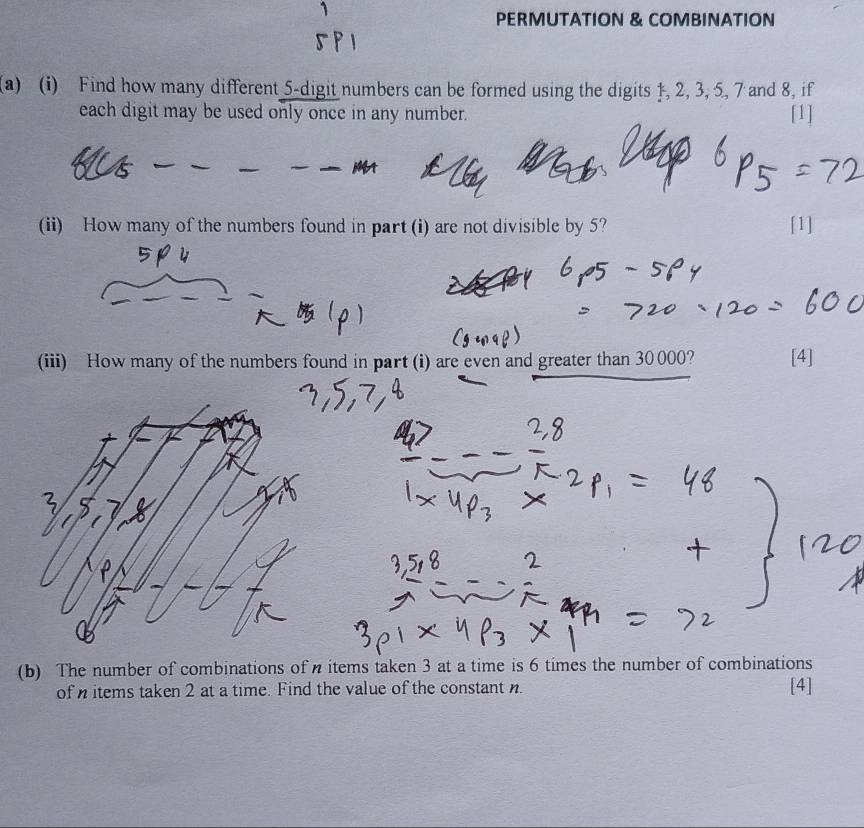 1
5P1
PERMUTATION & COMBINATION
(a) (i) Find how many different 5-digit numbers can be formed using the digits 1, 2, 3, 5, 7 and 8, if
each digit may be used only once in any number. [1]
6P5 = 72
(ii) How many of the numbers found in part (i) are not divisible by 5? [1]
5P4
6P5 - 5P4
1P1
= 720 - 120 = 600
(genap)
(iii) How many of the numbers found in part (i) are even and greater than 30 000? [4]
3,5,7,8
7 2,8
1 × 4P3 × 2P1 = 48
3,5,7,8
+ } 120
3,5,8 2
3P1 × 4P3 × 1 = 72
(b) The number of combinations of n items taken 3 at a time is 6 times the number of combinations
of n items taken 2 at a time. Find the value of the constant n. [4]